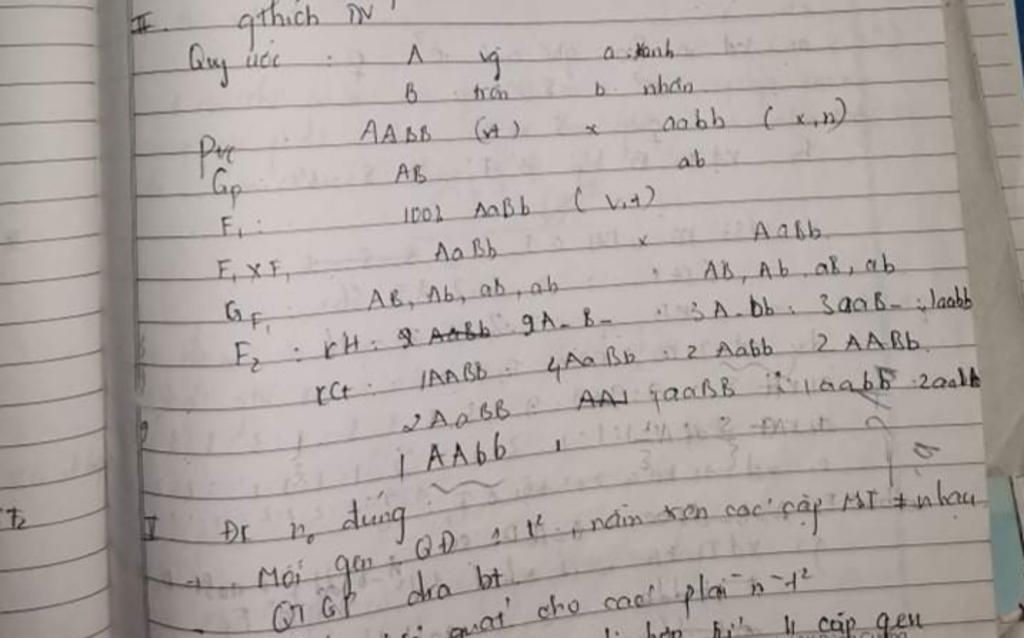 II. gthích TN
Quy ước : A vg a xanh
B trơn b nhăn
Ptc : AABB (vt) x aabb (x,n)
Gp AB ab
F1 : 100% AaBb (v,t)
F1 x F1 AaBb x AaBb
GF1 AB, Ab, aB, ab : AB, Ab, aB, ab
F2 : KH : 9 A-B- : 3A-bb : 3aaB- : 1aabb
KG : 1AABB : 4AaBb : 2 Aabb 2 AABb
2AaBB : 1aaBB 1aabb : 2aaBb
1 AAbb
Đk n° đúng
Mỗi gen QĐ 1 t², nằm trên các cặp NST ≠ nhau
QT GP dra bt
cho các
cặp gen